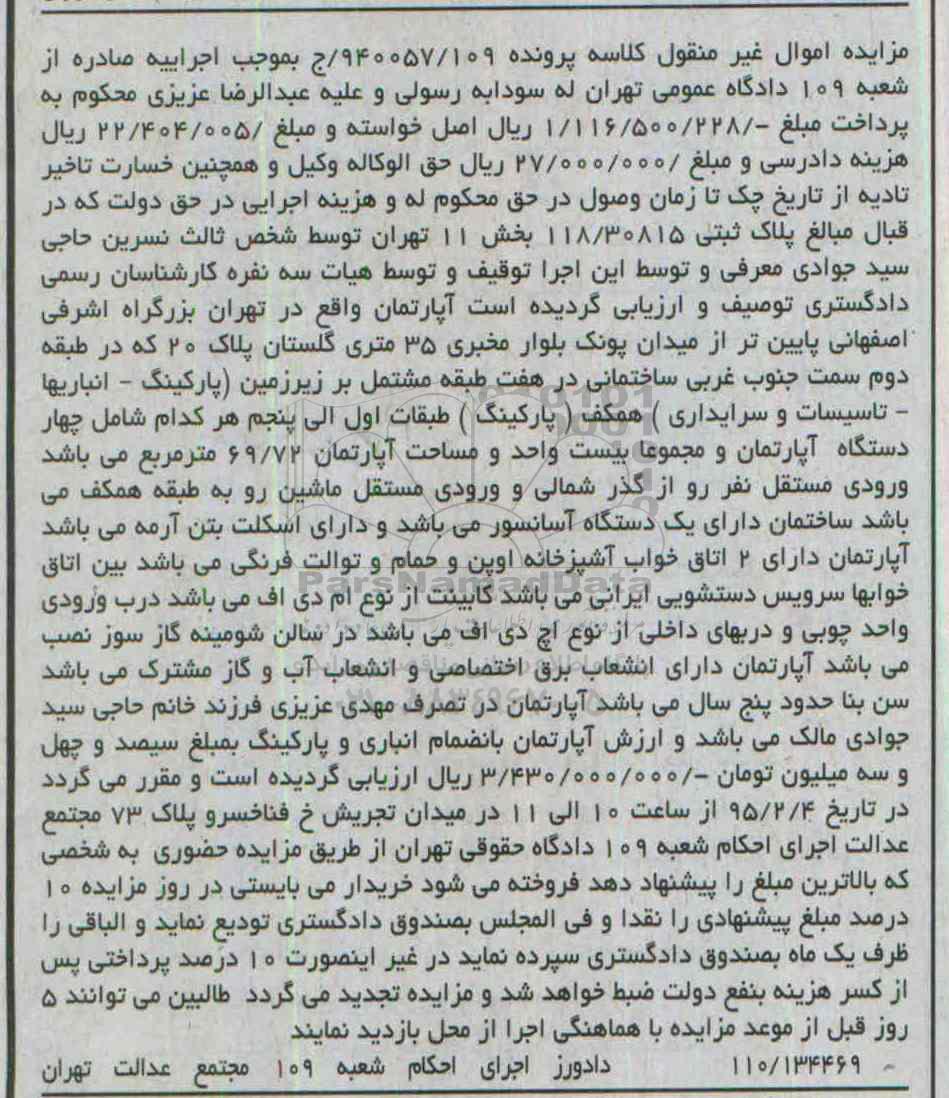 مزایده اموال غیر منقول کلاسه پرونده ۹۴۰۰۵۷/۱۰۹/ج بموجب اجراییه صادره از
شعبه ۱۰۹ دادگاه عمومی تهران له سودابه رسولی و علیه عبدالرضا عزیزی محکوم به
پرداخت مبلغ -/۱/۱۱۶/۵۰۰/۲۲۸ ریال اصل خواسته و مبلغ /۲۲/۴۰۴/۰۰۵ ریال
هزینه دادرسی و مبلغ /۲۷/۰۰۰/۰۰۰ ریال حق الوکاله وکیل و همچنین خسارت تاخیر
تادیه از تاریخ چک تا زمان وصول در حق محکوم له و هزینه اجرایی در حق دولت که در
قبال مبالغ پلاک ثبتی ۱۱۸/۳۰۸۱۵ بخش ۱۱ تهران توسط شخص ثالث نسرین حاجی
سید جوادی معرفی و توسط این اجرا توقیف و توسط هیات سه نفره کارشناسان رسمی
دادگستری توصیف و ارزیابی گردیده است آپارتمان واقع در تهران بزرگراه اشرفی
اصفهانی پایین تر از میدان پونک بلوار مخبری ۳۵ متری گلستان پلاک ۲۰ که در طبقه
دوم سمت جنوب غربی ساختمانی در هفت طبقه مشتمل بر زیرزمین (پارکینگ - انباریها
- تاسیسات و سرایداری ) همکف ( پارکینگ ) طبقات اول الی پنجم هر کدام شامل چهار
دستگاه آپارتمان و مجموعا بیست واحد و مساحت آپارتمان ۶۹/۷۲ مترمربع می باشد
ورودی مستقل نفر رو از گذر شمالی و ورودی مستقل ماشین رو به طبقه همکف می
باشد ساختمان دارای یک دستگاه آسانسور می باشد و دارای اسکلت بتن آرمه می باشد
آپارتمان دارای ۲ اتاق خواب آشپزخانه اوپن و حمام و توالت فرنگی می باشد بین اتاق
ParsNamadData
خوابها سرویس دستشویی ایرانی می باشد کابینت از نوع ام دی اف می باشد درب ورودی
واحد چوبی و دربهای داخلی از نوع اچ دی اف می باشد در سالن شومینه گاز سوز نصب
می باشد آپارتمان دارای انشعاب برق اختصاصی و انشعاب آب و گاز مشترک می باشد
سن بنا حدود پنج سال می باشد آپارتمان در تصرف مهدی عزیزی فرزند خانم حاجی سید
جوادی مالک می باشد و ارزش آپارتمان بانضمام انباری و پارکینگ بمبلغ سیصد و چهل
و سه میلیون تومان -/۳/۴۳۰/۰۰۰/۰۰۰ ریال ارزیابی گردیده است و مقرر می گردد
در تاریخ ۹۵/۲/۴ از ساعت ۱۰ الی ۱۱ در میدان تجریش خ فناخسرو پلاک ۷۳ مجتمع
عدالت اجرای احکام شعبه ۱۰۹ دادگاه حقوقی تهران از طریق مزایده حضوری به شخصی
که بالاترین مبلغ را پیشنهاد دهد فروخته می شود خریدار می بایستی در روز مزایده ۱۰
درصد مبلغ پیشنهادی را نقدا و فی المجلس بصندوق دادگستری تودیع نماید و الباقی را
ظرف یک ماه بصندوق دادگستری سپرده نماید در غیر اینصورت ۱۰ درصد پرداختی پس
از کسر هزینه بنفع دولت ضبط خواهد شد و مزایده تجدید می گردد طالبین می توانند ۵
روز قبل از موعد مزایده با هماهنگی اجرا از محل بازدید نمایند
۱۱۰/۱۳۴۴۶۹ دادورز اجرای احکام شعبه ۱۰۹ مجتمع عدالت تهران